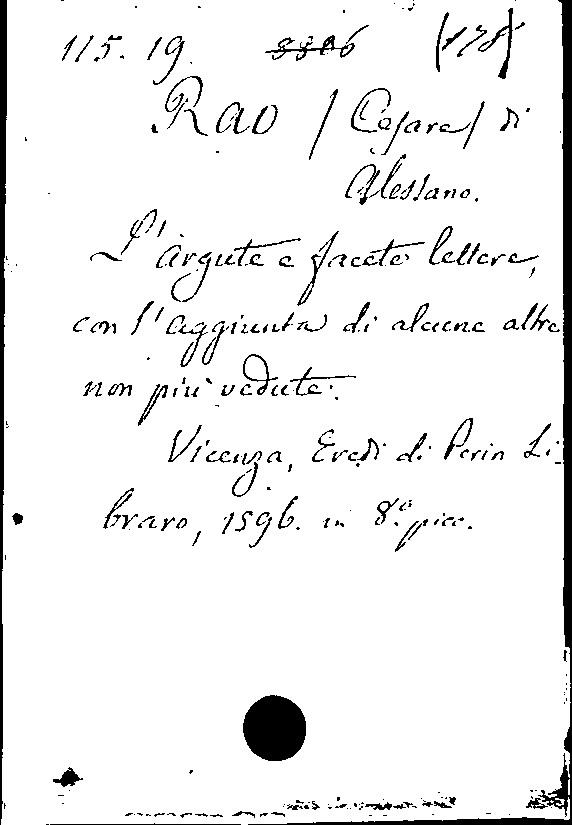 115. 19. 3306 (178)
Rao / Cesare / di
Alessano.
L'argute e facete lettere,
con l'aggiunta di alcune altre
non più vedute.
Vicenza, Eredi di Perin Li-
braro, 1596. in 8.º picc.